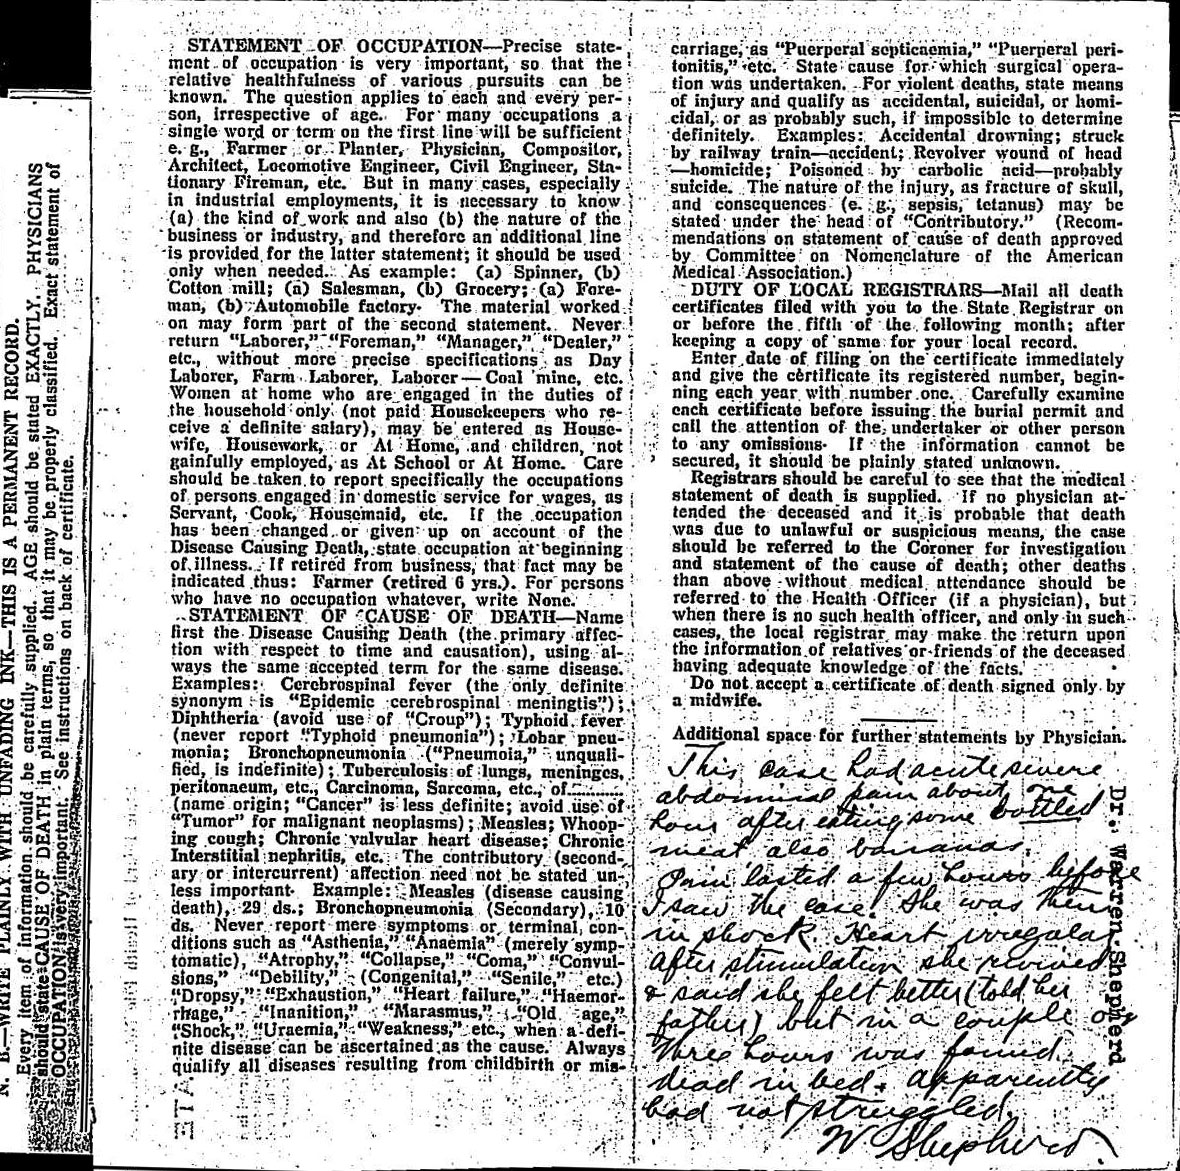 N. B.—WRITE PLAINLY WITH UNFADING INK—THIS IS A PERMANENT RECORD.
Every item of information should be carefully supplied. AGE should be stated EXACTLY. PHYSICIANS
should state CAUSE OF DEATH in plain terms, so that it may be properly classified. Exact statement of
OCCUPATION is very important. See instructions on back of certificate.
STATEMENT OF OCCUPATION—Precise state-
ment of occupation is very important, so that the
relative healthfulness of various pursuits can be
known. The question applies to each and every per-
son, irrespective of age. For many occupations a
single word or term on the first line will be sufficient
e. g., Farmer or Planter, Physician, Compositor,
Architect, Locomotive Engineer, Civil Engineer, Sta-
tionary Fireman, etc. But in many cases, especially
in industrial employments, it is necessary to know
(a) the kind of work and also (b) the nature of the
business or industry, and therefore an additional line
is provided for the latter statement; it should be used
only when needed. As example: (a) Spinner, (b)
Cotton mill; (a) Salesman, (b) Grocery; (a) Fore-
man, (b) Automobile factory. The material worked
on may form part of the second statement. Never
return "Laborer," "Foreman," "Manager," "Dealer,"
etc., without more precise specifications as Day
Laborer, Farm Laborer, Laborer—Coal mine, etc.
Women at home who are engaged in the duties of
the household only (not paid Housekeepers who re-
ceive a definite salary), may be entered as House-
wife, Housework, or At Home, and children, not
gainfully employed, as At School or At Home. Care
should be taken to report specifically the occupations
of persons engaged in domestic service for wages, as
Servant, Cook, Housemaid, etc. If the occupation
has been changed or given up on account of the
Disease Causing Death, state occupation at beginning
of illness. If retired from business, that fact may be
indicated thus: Farmer (retired 6 yrs.). For persons
who have no occupation whatever, write None.
STATEMENT OF CAUSE OF DEATH—Name
first the Disease Causing Death (the primary affec-
tion with respect to time and causation), using al-
ways the same accepted term for the same disease.
Examples: Cerebrospinal fever (the only definite
synonym is "Epidemic cerebrospinal meningtis");
Diphtheria (avoid use of "Croup"); Typhoid fever
(never report "Typhoid pneumonia"); Lobar pneu-
monia; Bronchopneumonia ("Pneumoia," unquali-
fied, is indefinite); Tuberculosis of lungs, meninges,
peritonaeum, etc., Carcinoma, Sarcoma, etc., of..........
(name origin; "Cancer" is less definite; avoid use of
"Tumor" for malignant neoplasms); Measles; Whoop-
ing cough; Chronic valvular heart disease; Chronic
Interstitial nephritis, etc. The contributory (second-
ary or intercurrent) affection need not be stated un-
less important. Example: Measles (disease causing
death), 29 ds.; Bronchopneumonia (Secondary), 10
ds. Never report mere symptoms or terminal con-
ditions such as "Asthenia," "Anaemia" (merely symp-
tomatic), "Atrophy," "Collapse," "Coma," "Convul-
sions," "Debility," (Congenital," "Senile," etc.)
"Dropsy," "Exhaustion," "Heart failure," "Haemor-
rhage," "Inanition," "Marasmus," "Old age,"
"Shock," "Uraemia," "Weakness," etc., when a defi-
nite disease can be ascertained as the cause. Always
qualify all diseases resulting from childbirth or mis-
carriage, as "Puerperal septicaemia," "Puerperal peri-
tonitis," etc. State cause for which surgical opera-
tion was undertaken. For violent deaths, state means
of injury and qualify as accidental, suicidal, or homi-
cidal, or as probably such, if impossible to determine
definitely. Examples: Accidental drowning; struck
by railway train—accident; Revolver wound of head
—homicide; Poisoned by carbolic acid—probably
suicide. The nature of the injury, as fracture of skull,
and consequences (e. g., sepsis, tetanus) may be
stated under the head of "Contributory." (Recom-
mendations on statement of cause of death approved
by Committee on Nomenclature of the American
Medical Association.)
DUTY OF LOCAL REGISTRARS—Mail all death
certificates filed with you to the State Registrar on
or before the fifth of the following month; after
keeping a copy of same for your local record.
Enter date of filing on the certificate immediately
and give the certificate its registered number, begin-
ning each year with number one. Carefully examine
each certificate before issuing the burial permit and
call the attention of the undertaker or other person
to any omissions. If the information cannot be
secured, it should be plainly stated unknown.
Registrars should be careful to see that the medical
statement of death is supplied. If no physician at-
tended the deceased and it is probable that death
was due to unlawful or suspicious means, the case
should be referred to the Coroner for investigation
and statement of the cause of death; other deaths
than above without medical attendance should be
referred to the Health Officer (if a physician), but
when there is no such health officer, and only in such
cases, the local registrar may make the return upon
the information of relatives or friends of the deceased
having adequate knowledge of the facts.
Do not accept a certificate of death signed only by
a midwife.
Additional space for further statements by Physician.
This case had acute severe
abdominal pain about one
hour after eating some bottled
meat also bananas.
Pain lasted a few hours before
I saw the case. She was then
in shock. Heart irregular
After stimulation she revived
& said she felt better (told her
father) but in a couple or
three hours was found
dead in bed. apparently
had not struggled.
W Shepherd.
Dr. Warren Shepherd